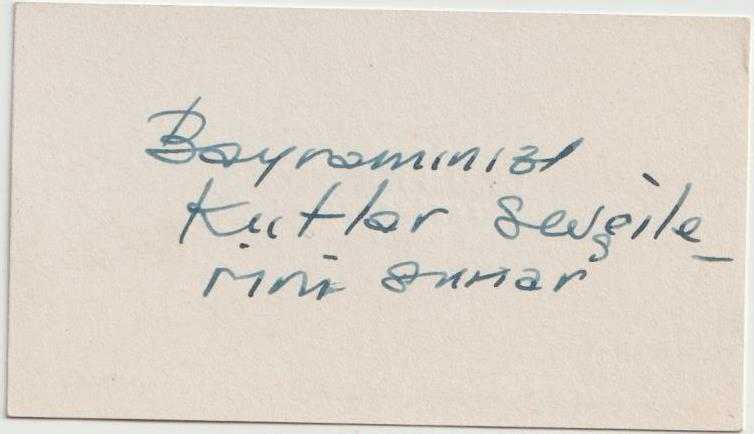 Bayramınızı
Kutlar sevgile_
rini sunar